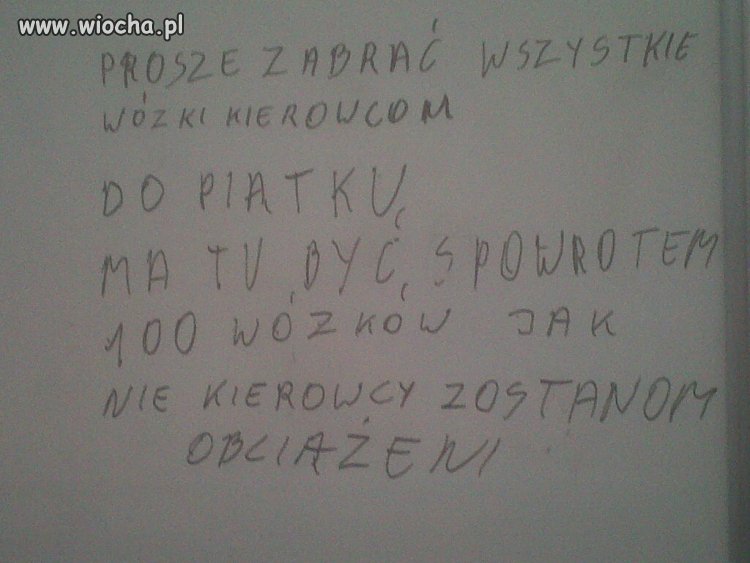 www.wiocha.pl
PROSZE ZABRAĆ WSZYSTKIE
WÓZKI KIEROWCOM
DO PIATKU,
MA TU BYĆ, SPOWROTEM
100 WÓZKÓW JAK
NIE KIEROWCY ZOSTANOM
OBCIĄŻENI